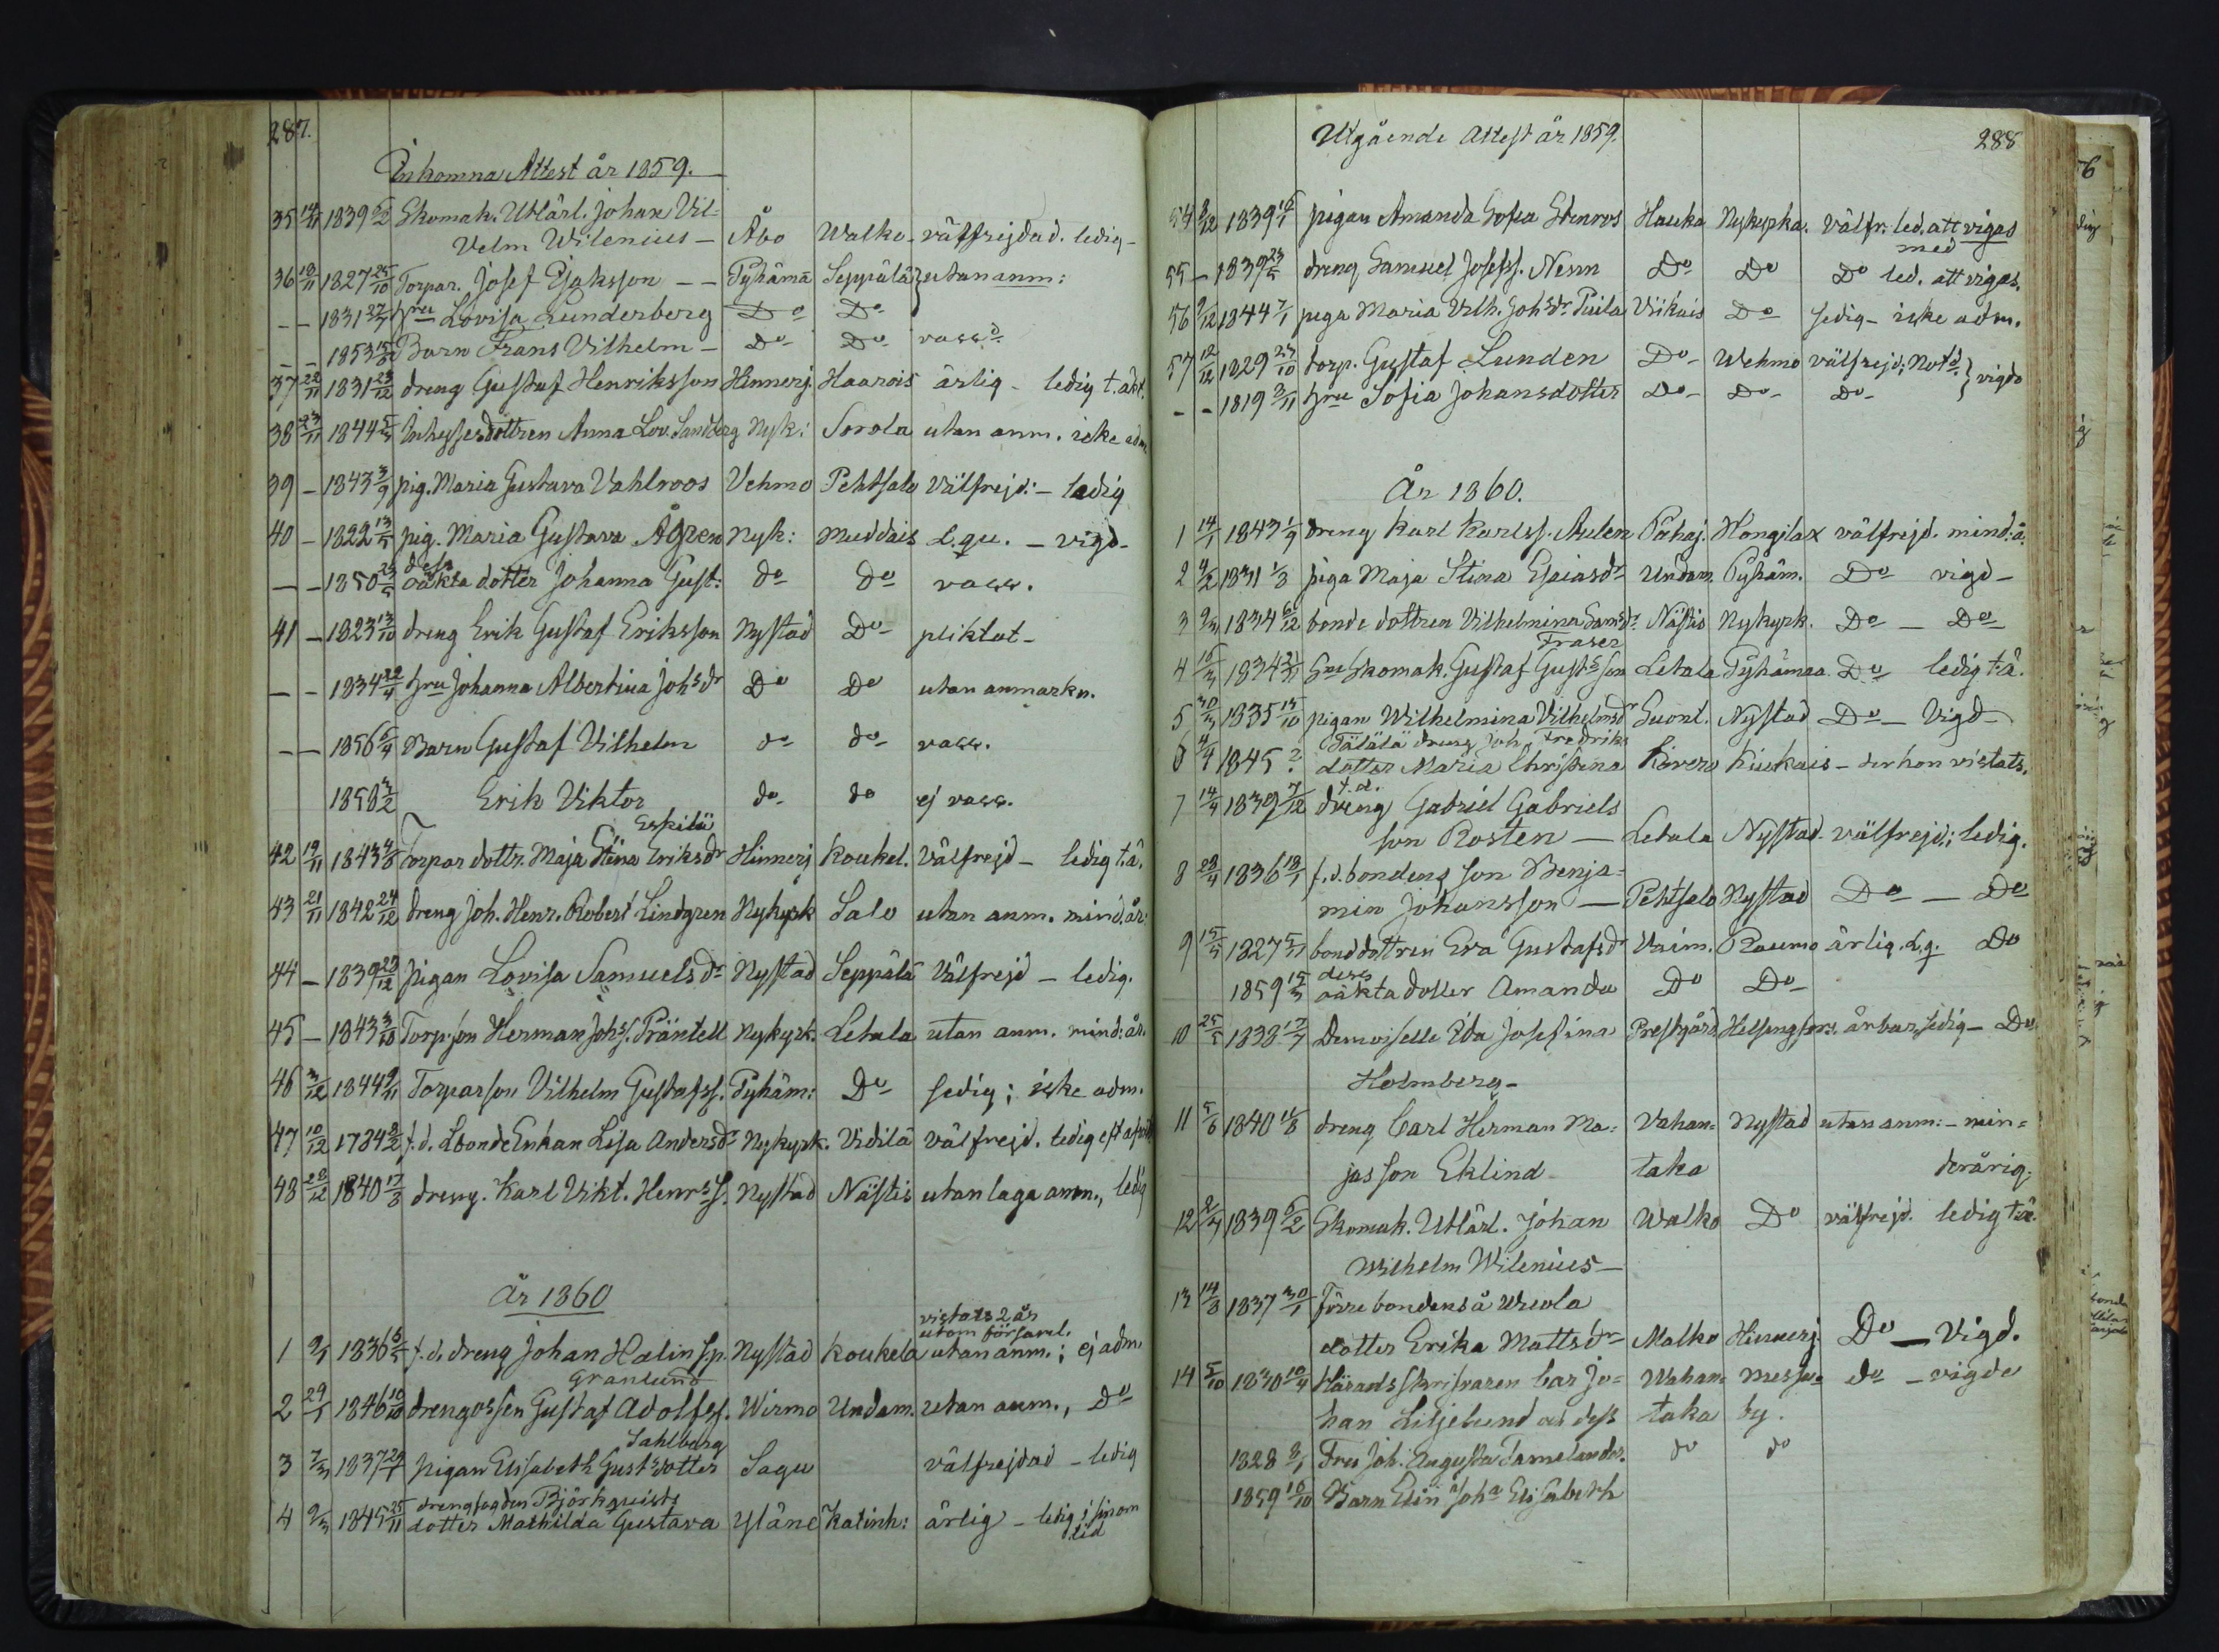 287.
Inkomna Attest år 1859.
35 14/11 1839 6/2 Skomak. Utlärl. Johan Vil-
helm Wilenius - Åbo Walko - välfrejdad. ledig -
36 18/11 1827 25/10 Torpar. Josef Esaksson - - Pyhämä Seppälä utan anm:
- - 1831 27/7 hru Lovisa Lunderberg Do Do
- - 1853 Barn Frans Vilhelm - Do Do vacc.d
37 22/11 1831 23/12 dreng Gustaf Henriksson Hinnerj. Haarois ärlig - ledig t. äkt.
38 23/11 1844 Inhyses dottren Anna Lov. Sandberg Nyk: Sorola utan anm. icke adm
39 - 1843 3/9 pig. Maria Gustava Vahlroos Vehmo Pehtsalo välfrejd: - ledig
40 - 1822 13/5 pig. Maria Gustava Ågren Nyk: Muddais L.qv. - vigd -
dess
- - 1850 oäkta dotter Johanna Gust: do do vacc.
41 - 1823 13/10 dreng Erik Gustaf Eriksson Nystad Do - pliktat -
- - 1834 22/4 hru Johanna Albertina Johsdr Do Do utan anmärkn.
- - 1856 6/4 Barn Gustaf Vilhelm do do vacc.
1858 3/2 Erik Viktor do do ej vacc.
Eskilä
42 19/11 1843 4/8 Torpar dottr. Maja Stina Eriksdr Hinnerj Koukel. välfrejd - ledig t.ä.
43 21/11 1842 24/12 dreng Joh. Henr. Robert Lindgren Nykyrk Salo utan anm. mind. år:
44 - 1839 29/12 pigan Lovisa Samuelsdr Nystad Seppälä välfrejd - ledig.
45 - 1843 3/10 Torp. son Herman Johs. Präntell Nykyrk. Letala utan anm. mind: år.
46 3/12 1844 9/11 Torparson Vilhelm Gustafss. Pyhäm: Do sedig; icke adm.
47 10/12 1784 8/2 f.d. Lbonde Enkan Lisa Andersdr Nykyrk. Vidilä välfrejd. ledig
48 28/12 1840 17/3 dreng. Karl Vikt. Henrss. Nystad Nästis utan laga anm., ledig
År 1860
vistats 2 år
utom församl.
1 1836 5/5 f.d. dreng Johan Halin sp. Nystad Koukela utan anm.; ej adm
Granlund
2 29/1 1846 10/10 drengossen Gustaf Adolfss. Wirmo Undam. utan anm., Do
Sahlberg
3 7/3 1837 29/1 pigan Elisabeth Gustsdotter Sagu välfrejdad - ledig
drengfogden Björkquists
4 9/3 1845 25/11 dotter Mathilda Gustava Yläne Katinh: ärlig - ledig; sin om
tid
Utgående Attest år 1859. 288
54 8/12 1839 pigan Amanda Sofia Stenros Hauka Nykyrka. välfr. led. att vigas
med
55 - 1839 23/5 dreng Samuel Josefss. Nesrn Do Do Do led. att vigas.
56 9/12 1844 7/1 piga Maria Vilh. Johsdr Piila Viikais Do sedig - icke adm.
57 12/12 1829 27/10 torp. Gustaf Lunden Do - Wehmo välfrejd; Notd. } vigde
- - 1819 2/11 hru Sofia Johansdotter Do - Do - Do -
År 1860.
1 14/1 1843 1/9 dreng Karl Karlss. Aulen Pahaj. Hongilax välfrejd. mind: å.
2 9/2 1831 1/3 piga Maja Stina Esaiasdr Undam. Pyhäm. Do vigd -
3 9/3 1834 6/12 bonde dottren Vilhelmina Samsdr Nästis Nykyrk. Do - Do
Fraser
4 15/3 1834 Gse Skomak. Gustaf Gustsson Letala Pyhämaa Do ledig t.ä.
5 30/3 1835 15/10 pigan Wilhelmina Vilhelmsdr Suont. Nystad Do - Vigd -
Tälälä dreng Joh. Fredriks
6 4/4 1845 ? dotter Maria Christina Kövero Kiukais - der hon vistats.
f.d.
7 14/4 1839 7/12 dreng Gabriel Gabriels
son Rosten - Letala Nystad. välfrejd; ledig.
8 28/4 1836 18/1 f.d. bondens son Benja-
min Johansson - Pehtsalo Nystad Do - Do
9 15/5 1827 5/7 bonddottren Eva Gustafsdr Vaim. Raumo ärlig. L.q. Do
dess
1859 15/3 oäkta dotter Amanda Do Do
10 25/5 1838 17/7 Demoiselle Ida Josefina Prestgård Helsingfors. ärbar, sedig - Do
Holmberg -
11 5/6 1840 dreng Carl Herman Ma- Vahan- Nystad utan anm: - min-
jasson Eklind taka derårig.
12 2/7 1839 6/2 Skomak. Utlärl. Johan Walko Do välfrejd. ledig t.ä.
Wilhelm Wilenius -
13 14/8 1837 30/1 förre bondens å Ursola
dotter Erika Mattsdr Malko Hinnerj. Do - Vigd.
14 5/10 1830 10/4 Häradsskrifvaren Car Jo- Wahan- Messu- do - vigde
han Liljelund och dess taka by.
1828 8/1 Fru Joh. Augusta Tamelander. do do
1859 10/10 Barn Elin Joha Elisabeth